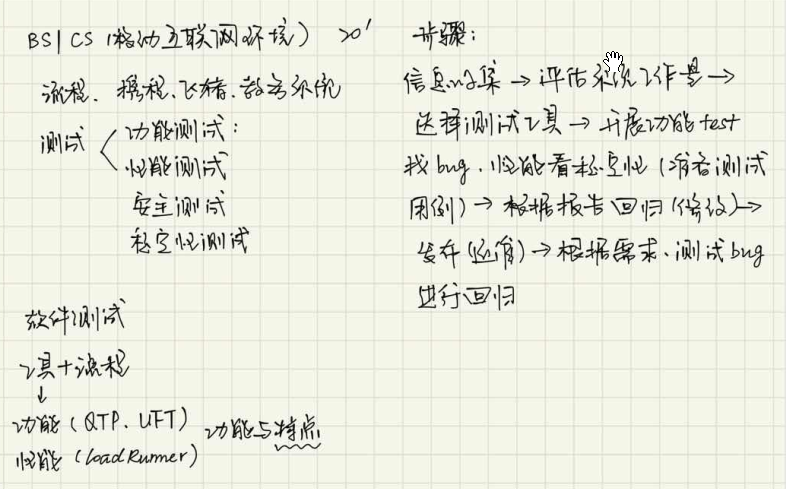 BS|CS (移动互联网环境) 20'
流程、携程、飞猪、教务系统
测试 功能测试:
性能测试
安全测试
稳定性测试
软件测试
工具+流程
↓
功能 (QTP、UFT) 功能与特点
性能 (LoadRunner)
步骤:
信息收集 → 评估系统工作量 →
选择测试工具 → 开展功能test
找bug、性能看稳定性 (准备测试
用例) → 根据报告回归 (修改) →
发布 (运维) → 根据需求、测试bug
进行回归